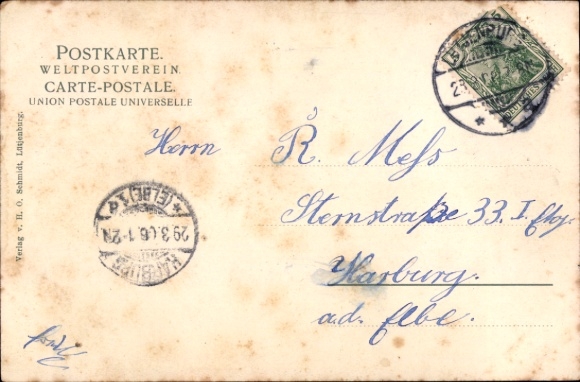 POSTKARTE.
WELTPOSTVEREIN.
CARTE-POSTALE.
UNION POSTALE UNIVERSELLE
Verlag v. H. O. Schmidt, Lütjenburg.
Herrn R. Mess
Sternstraße 33. I. Etg.
Harburg.
a. d. Elbe.
HARBURG
29.3.06. 1-2N
* (ELBE) 1 *